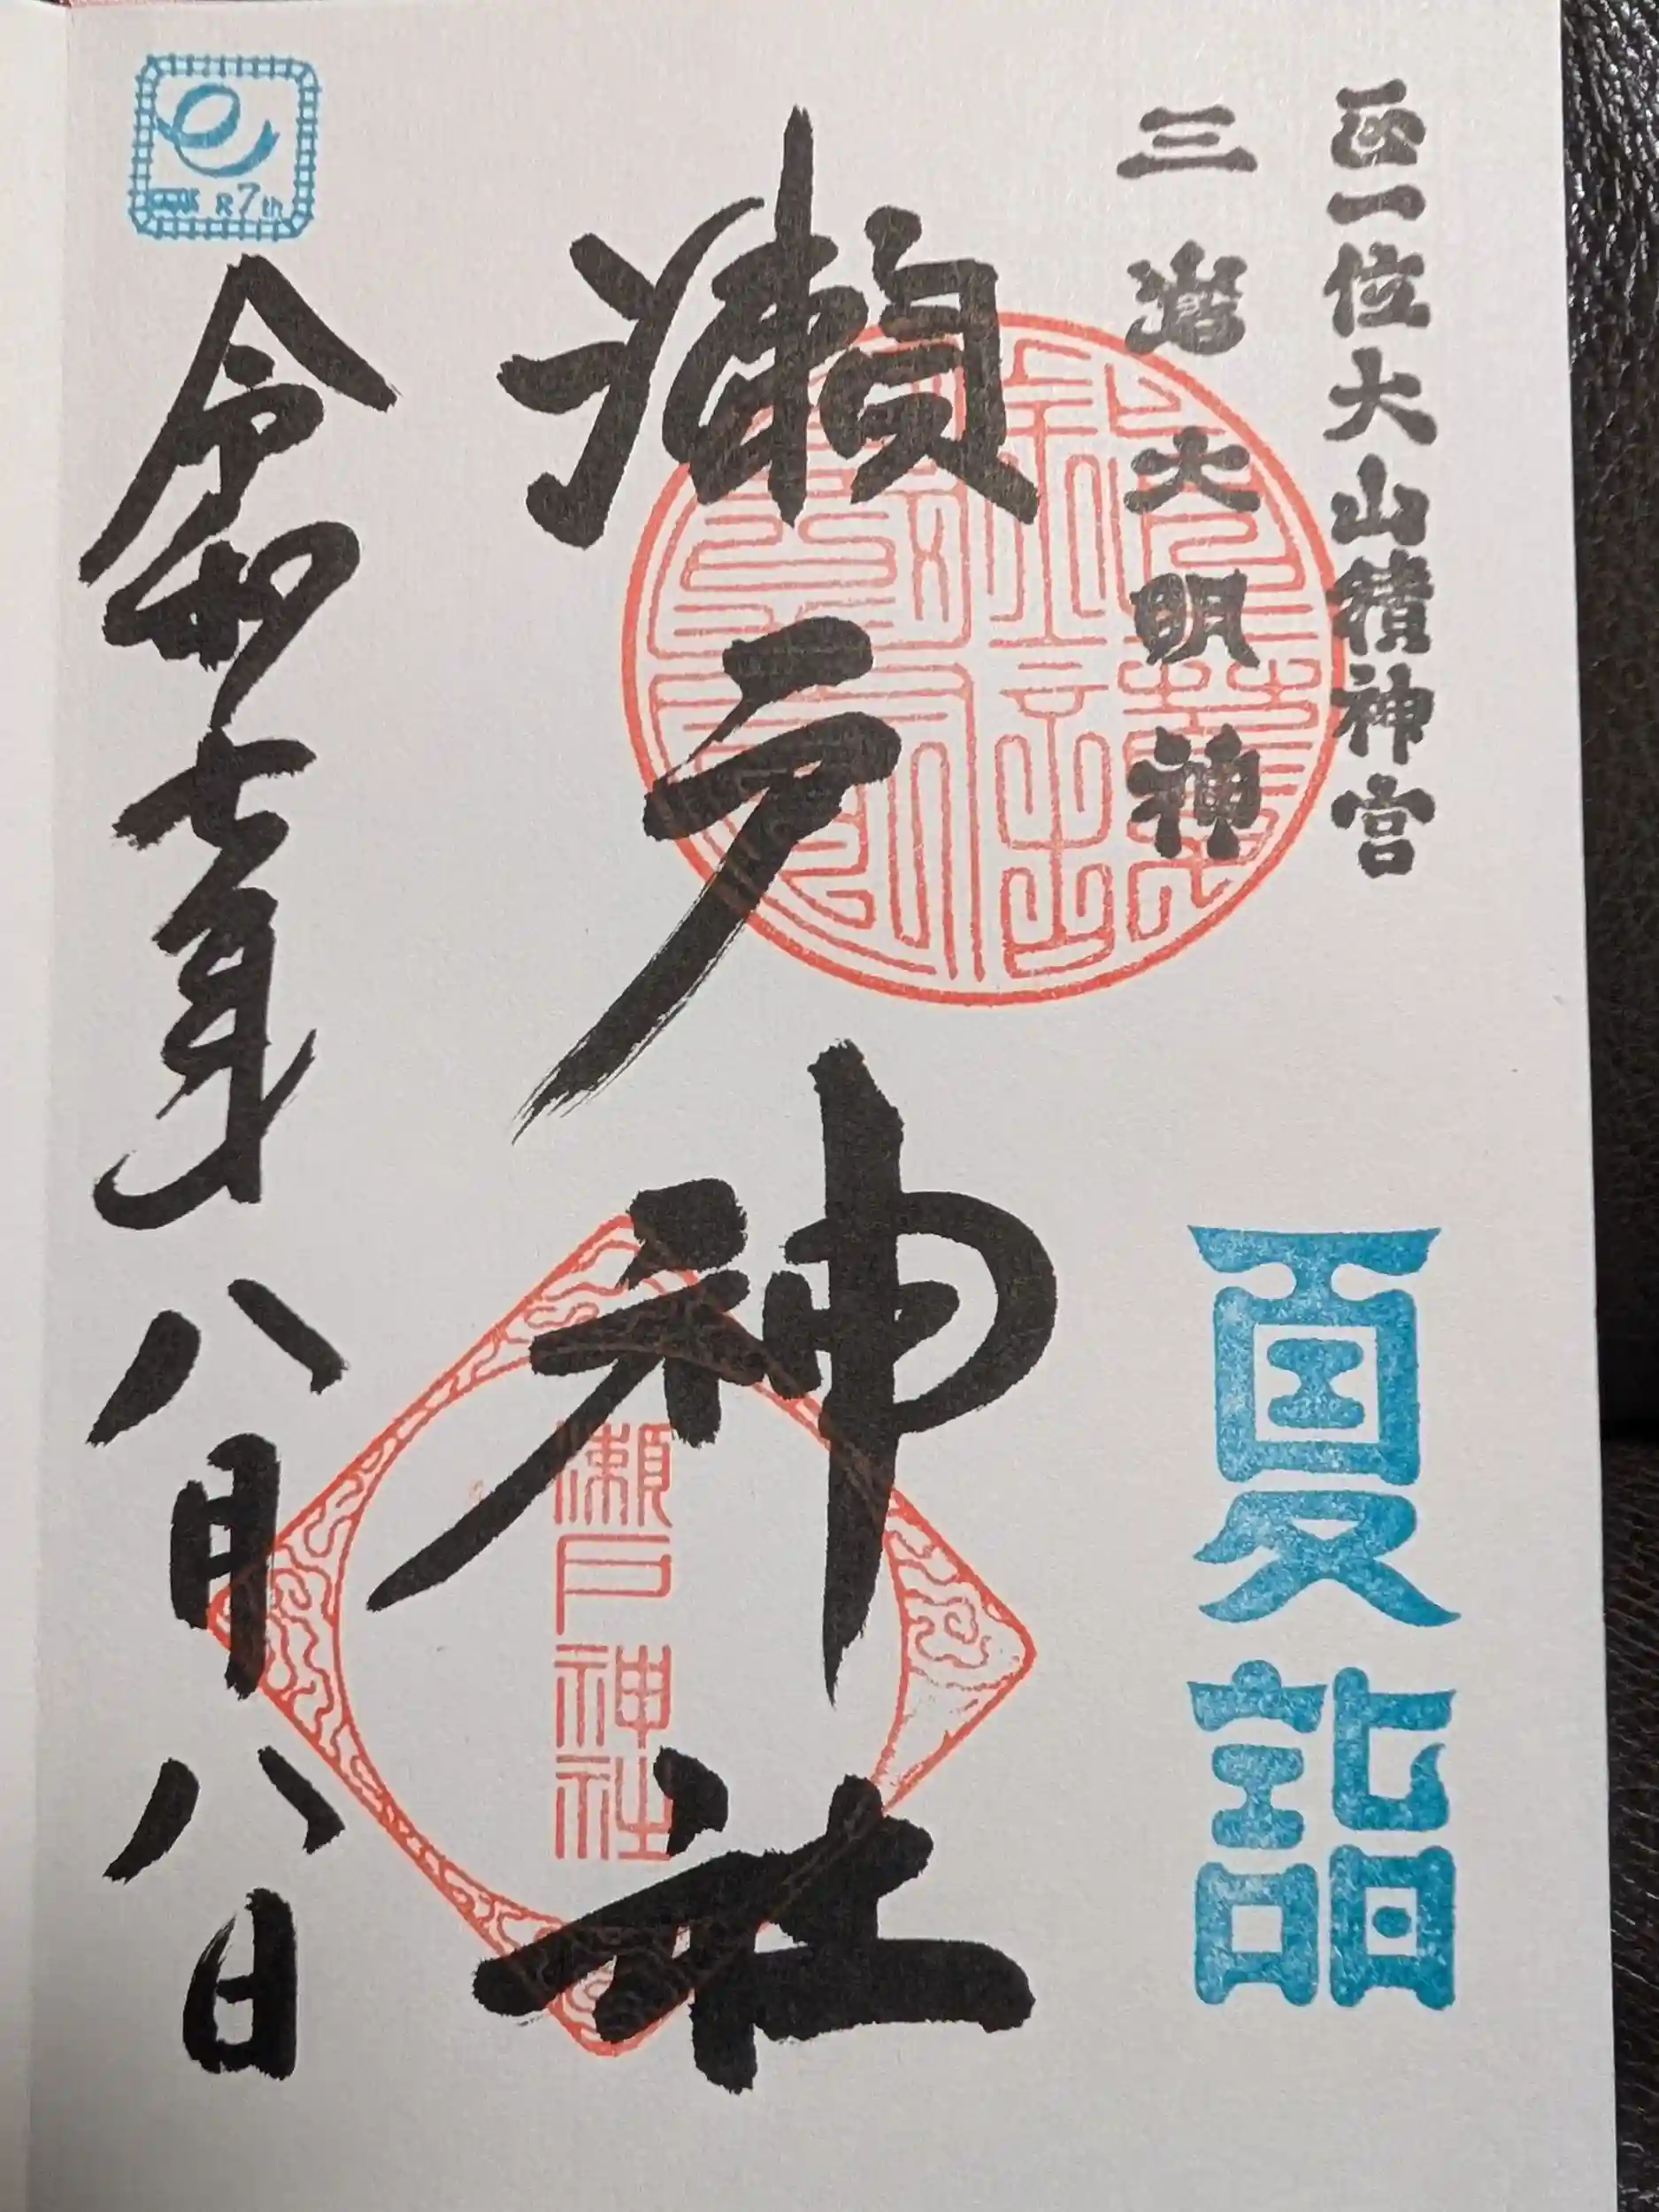 正一位大山積神宮
三嶌大明神
夏詣
瀬戸神社
瀬戸神社
令和七年八月八日
e
R7th